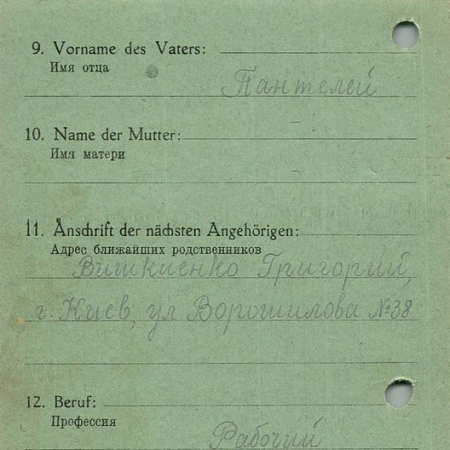 9. Vorname des Vaters:
Имя отца
Пантелей
10. Name der Mutter:
Имя матери
11. Anschrift der nächsten Angehörigen:
Адрес ближайших родственников
Вишкиенко Григорий,
г. Киев, ул Ворошилова №38
12. Beruf:
Профессия
Рабочий